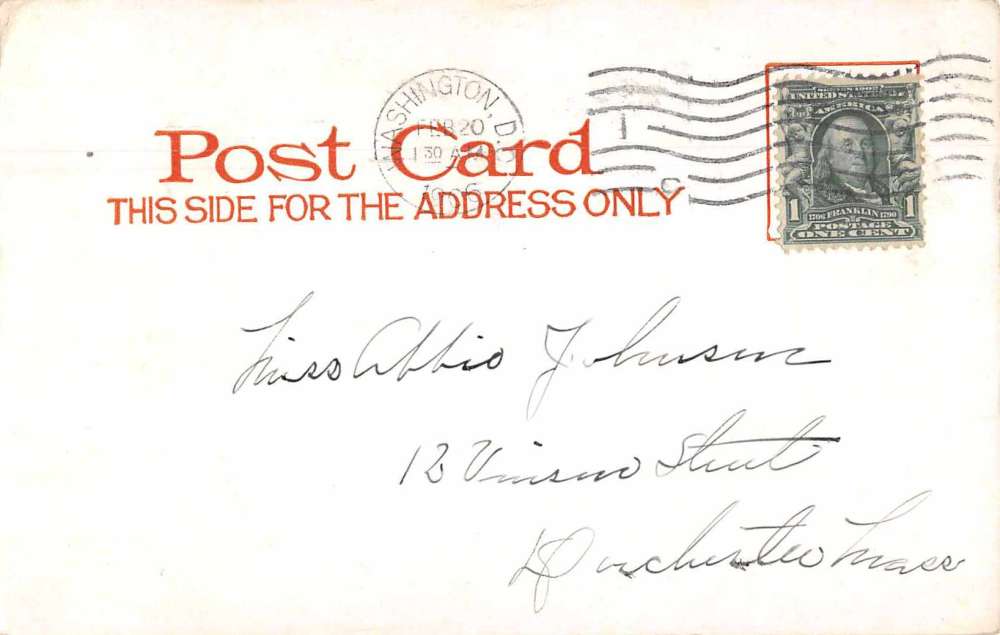 WASHINGTON, D.C.
FEB 20
1 30 A M
1906
Post Card
THIS SIDE FOR THE ADDRESS ONLY
SERIES 1902
UNITED STATES OF
AMERICA
1 1706 FRANKLIN 1790 1
POSTAGE
ONE CENT
Miss Abbie Johnson
12 Vinson Street
Dorchester Mass